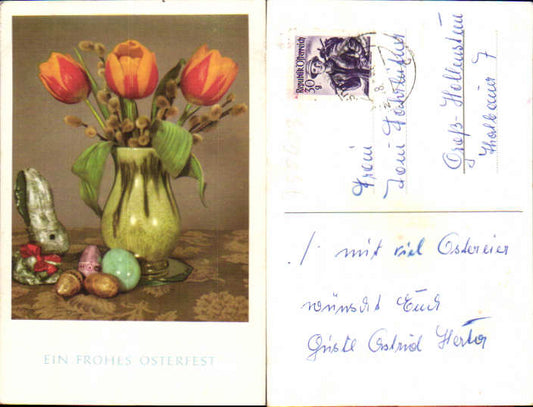 EIN FROHES OSTERFEST
Republik Österreich
30
g
Frau
Toni
Groß-Hollenstein
7
./. mit viel Ostereier
wünscht Euch
Gustl Astrid Herta